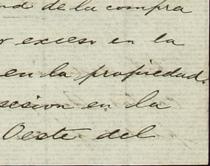 de la compra
exceso en la
en la propiedad
sesion en la
Oeste del